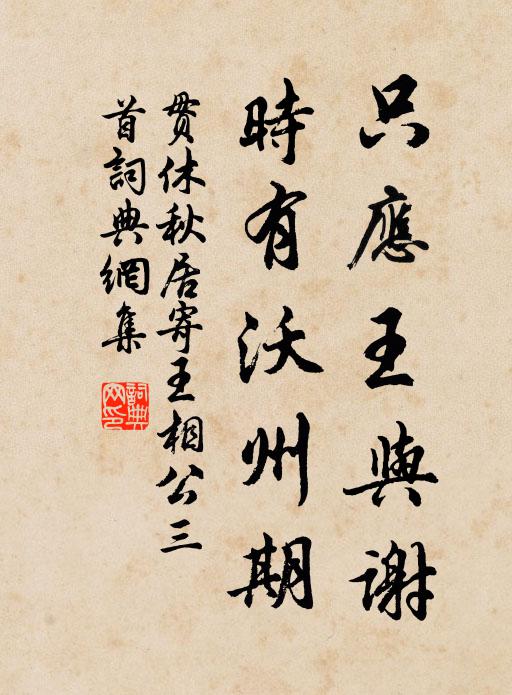 只應王與謝
時有沃州期
貫休秋居寄王相公三
首詞典網集
詞典
网印